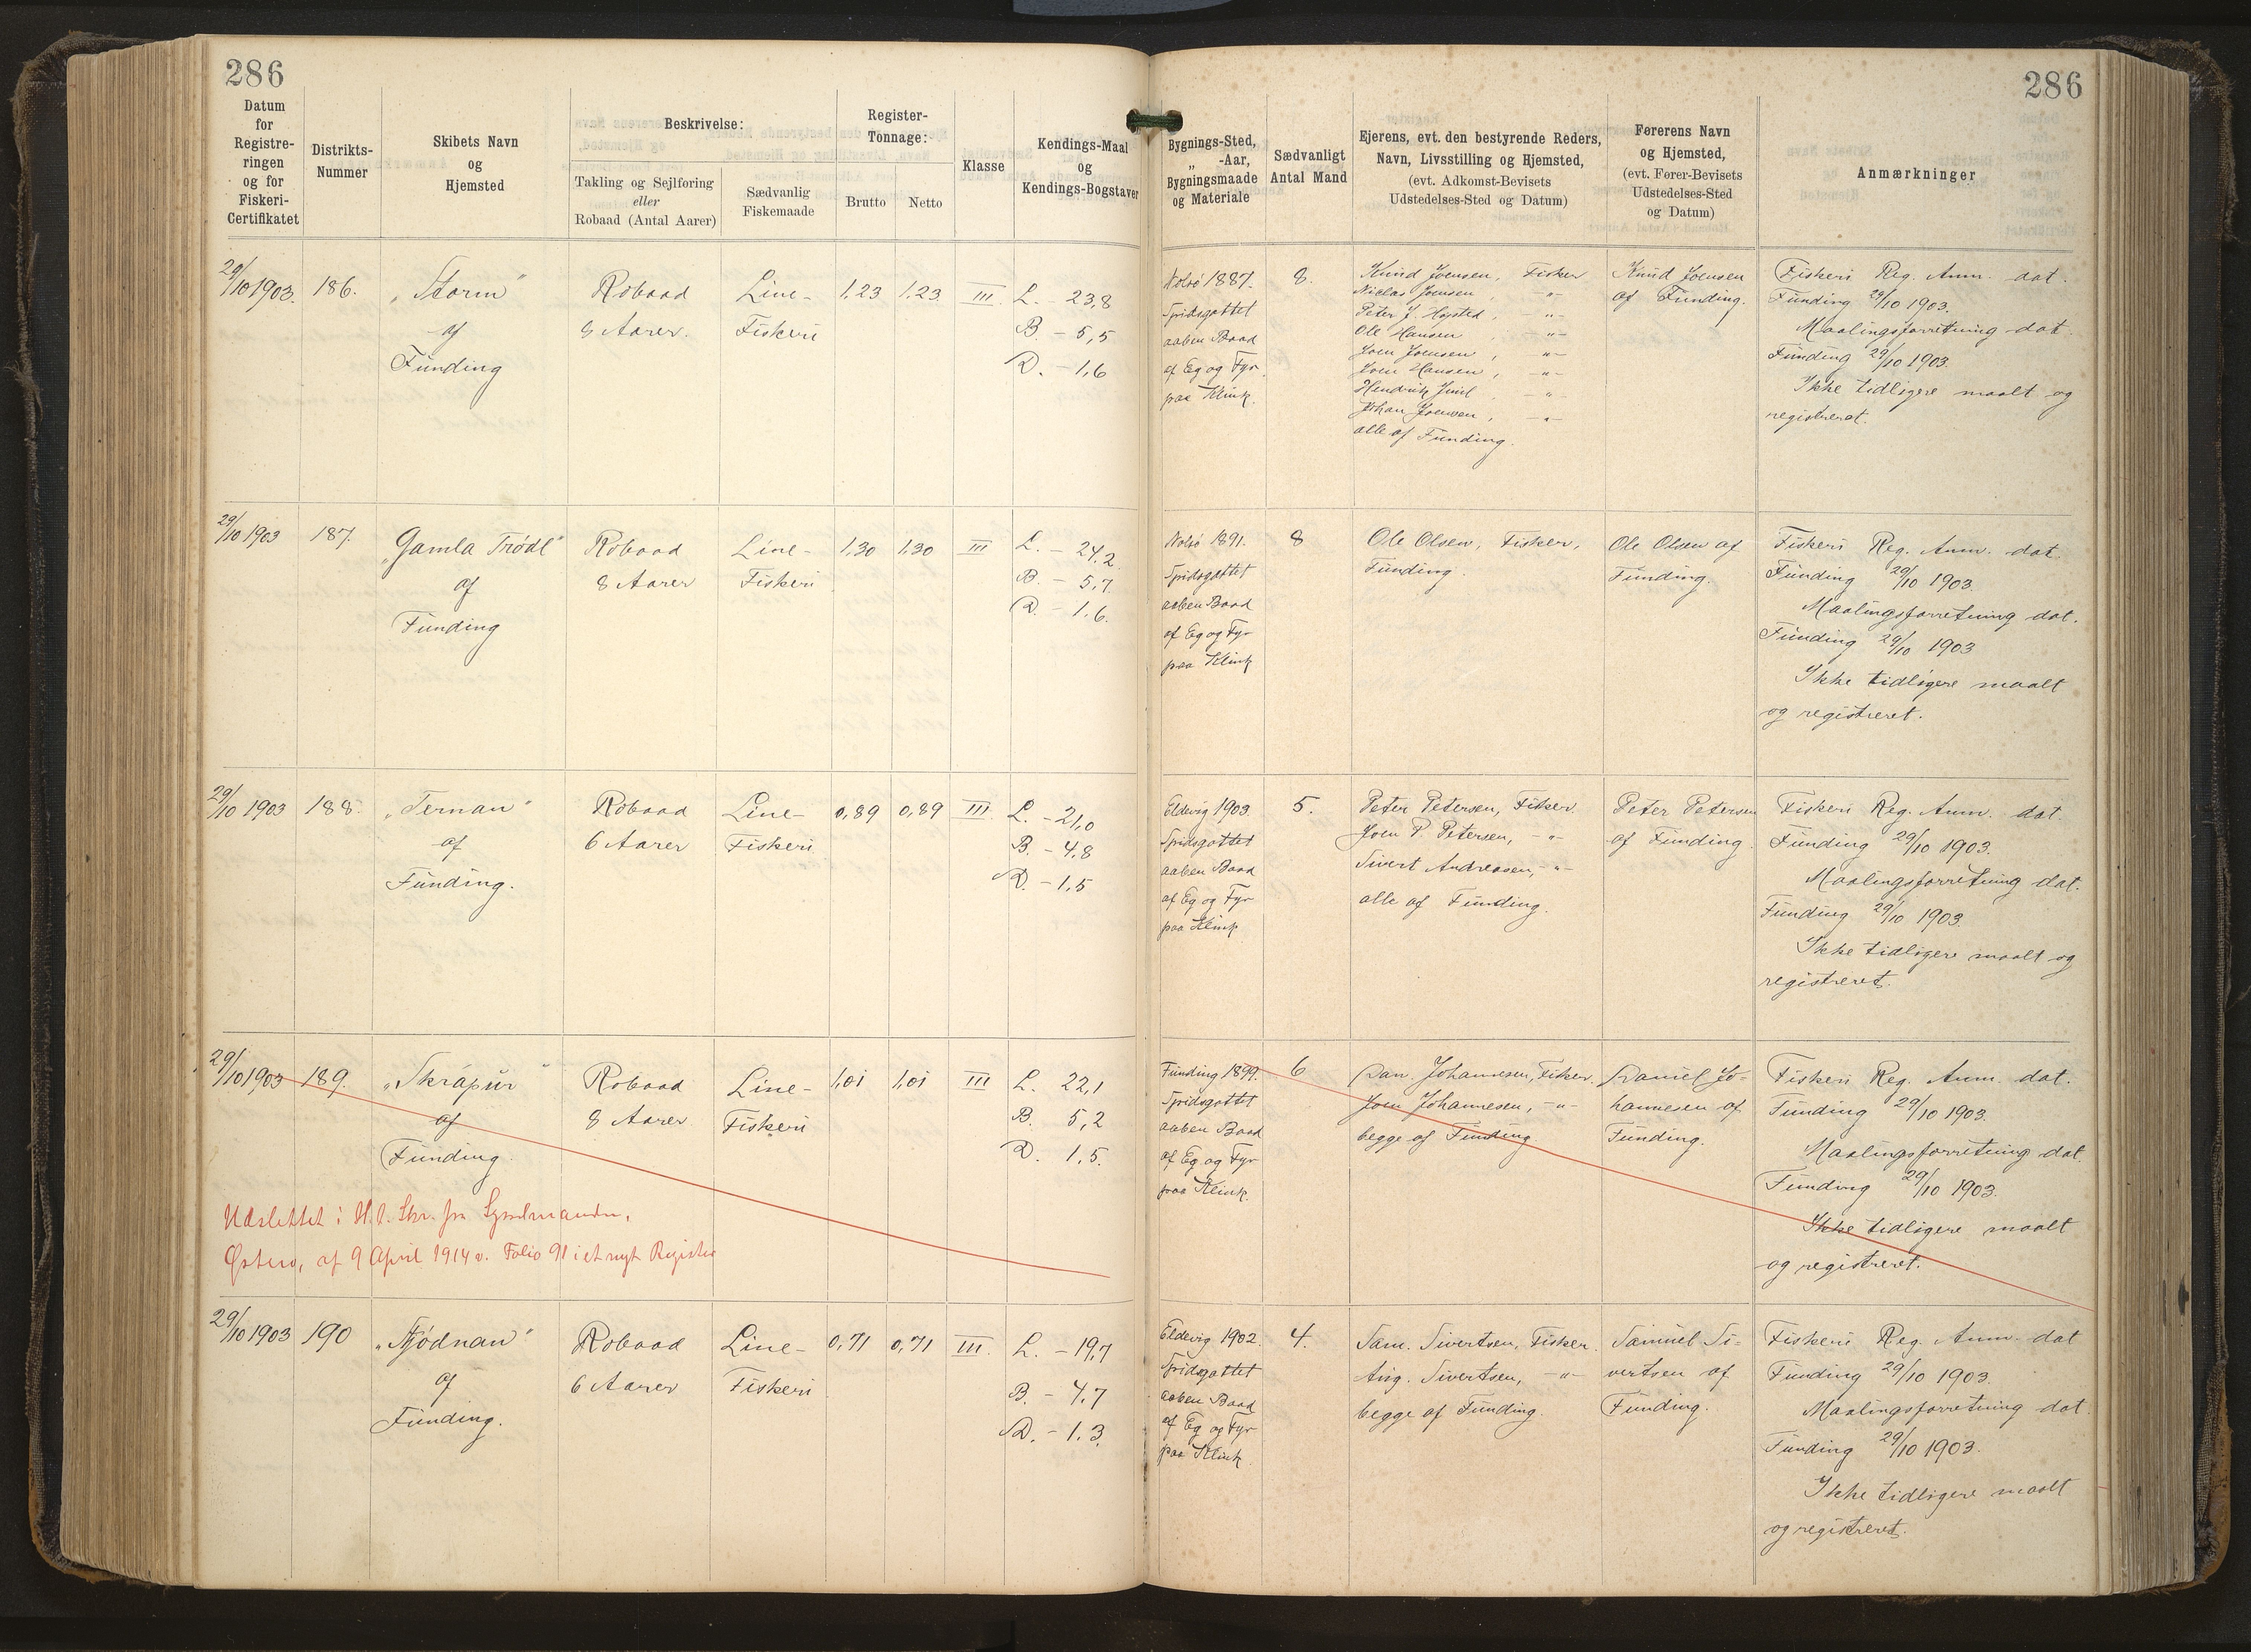 286
286
Datum
for
Registre-
ringen
og for
Fiskeri-
Certifikatet
Distrikts-
Nummer
Skibets Navn
og
Hjemsted
Beskrivelse:
Takling og Sejlføring
eller
Robaad (Antal Aarer)
Sædvanlig
Fiskemaade
Register-
Tonnage:
Brutto
Netto
Klasse
Kendings-Maal
og
Kendings-Bogstaver
Bygnings-Sted,
„ -Aar,
Bygningsmaade
og Materiale
Sædvanligt
Antal Mand
Ejerens, evt. den bestyrende Reders,
Navn, Livsstilling og Hjemsted,
(evt. Adkomst-Bevisets
Udstedelses-Sted og Datum)
Førerens Navn
og Hjemsted,
(evt. Fører-Bevisets
Udstedelses-Sted
og Datum)
Anmærkninger
29/10 1903.
186.
„Storm"
af
Funding
Robaad
8 Aarer.
Line-
Fiskeri
1,23
1,23
III.
L. - 23,8
B. - 5,5
D. - 1,6
Nolsö 1887.
Spidsgattet
aaben Baad
af Eg og Fyr
paa Klink.
8.
Knud Joensen, Fisker
Niclas Joensen, -"-
Peter J. Højsted, -"-
Ole Hansen, -"-
Joen Joensen, -"-
Joen Hansen, -"-
Hendrik Juul -"-
Johan Joensen, -"-
alle af Funding.
Knud Joensen
af Funding.
Fiskeri Reg. Anm. dat.
Funding 29/10 1903.
Maalingsforretning dat.
Funding 29/10 1903.
Ikke tidligere maalt og
registreret.
29/10 1903
187.
„Gamla Trödl"
af
Funding
Robaad
8 Aarer
Line-
Fiskeri
1,30
1,30
III
L. - 24,2
B. - 5,7
D. - 1,6.
Nolsö 1891.
Spidsgattet
aaben Baad
af Eg og Fyr
paa Klink
8
Ole Olsen, Fisker,
Funding
Ole Olsen af
Funding.
Fiskeri Reg. Anm. dat.
Funding 29/10 1903.
Maalingsforretning dat.
Funding 29/10 1903
Ikke tidligere maalt
og registreret.
29/10 1903
188.
„Ternan"
af
Funding.
Robaad
6 Aarer
Line-
Fiskeri
0,89
0,89
III.
L. - 21,0
B. - 4,8
D. - 1,5
Eldevig 1903.
Spidsgattet
aaben Baad
af Eg og Fyr
paa Klink
5.
Peter Petersen, Fisker.
Joen P. Petersen, -"-
Sivert Andreasen, -"-
alle af Funding.
Peter Petersen
af Funding.
Fiskeri Reg. Anm. dat.
Funding 29/10 1903.
Maalingsforretning dat.
Funding 29/10 1903.
Ikke tidligere maalt og
registreret.
29/10 1903
189.
„Skrápur"
af
Funding.
Robaad
8 Aarer
Line-
Fiskeri
1,01
1,01
III
L. 22,1
B. 5,2
D. 1,5.
Funding 1899.
Spidsgattet
aaben Baad
af Eg og Fyr
paa Klink.
6
Dan. Johannesen, Fisker.
Joen Johannesen, -"-
begge af Funding
Daniel Jo-
hannesen af
Funding.
Fiskeri Reg. Anm. dat.
Funding 29/10 1903.
Maalingsforretning dat.
Funding 29/10 1903.
Ikke tidligere maalt
og registreret.
Udslettet i H.t. Skr. fra Sysselmanden,
Østerø, af 9 April 1914 v. Folio 91 i et nyt Register
29/10 1903
190
„Tjódnan"
af
Funding.
Robaad
6 Aarer
Line-
Fiskeri
0,71
0,71
III.
L. - 19,7
B. - 4,7
D. - 1,3.
Eldevig 1902.
Spidsgattet
aaben Baad
af Eg og Fyr
paa Klink.
4.
Sam. Sivertsen, Fisker.
Aug. Sivertsen, -"-
begge af Funding.
Samuel Si-
vertsen af
Funding.
Fiskeri Reg. Anm. dat
Funding 29/10 1903.
Maalingsforretning dat.
Funding 29/10 1903.
Ikke tidligere maalt
og registreret.